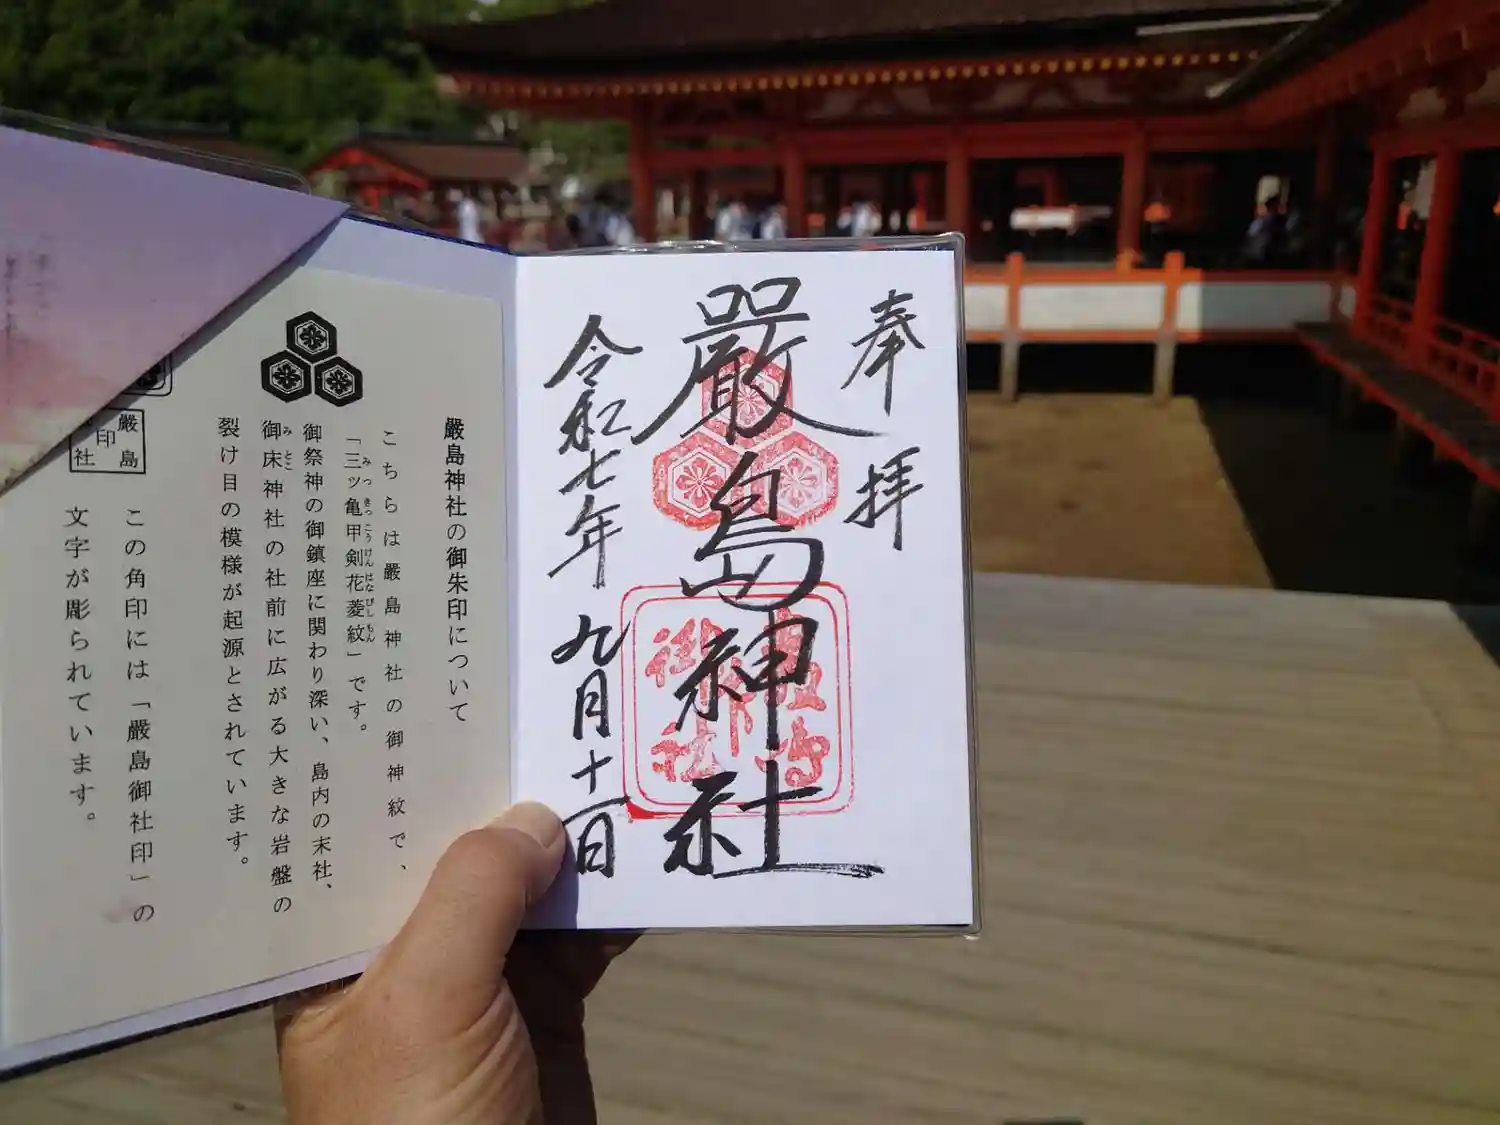 奉拝
嚴島神社
嚴島
印
御社
令和七年 九月十一日
嚴島神社の御朱印について
こちらは嚴島神社の御神紋で、
「三ッ亀甲剣花菱紋」です。
みつきっこうけんはなびしもん
御祭神の御鎮座に関わり深い、島内の末社、
御床神社の社前に広がる大きな岩盤の
みとこ
裂け目の模様が起源とされています。
嚴島
印
社
この角印には「嚴島御社印」の
文字が彫られています。